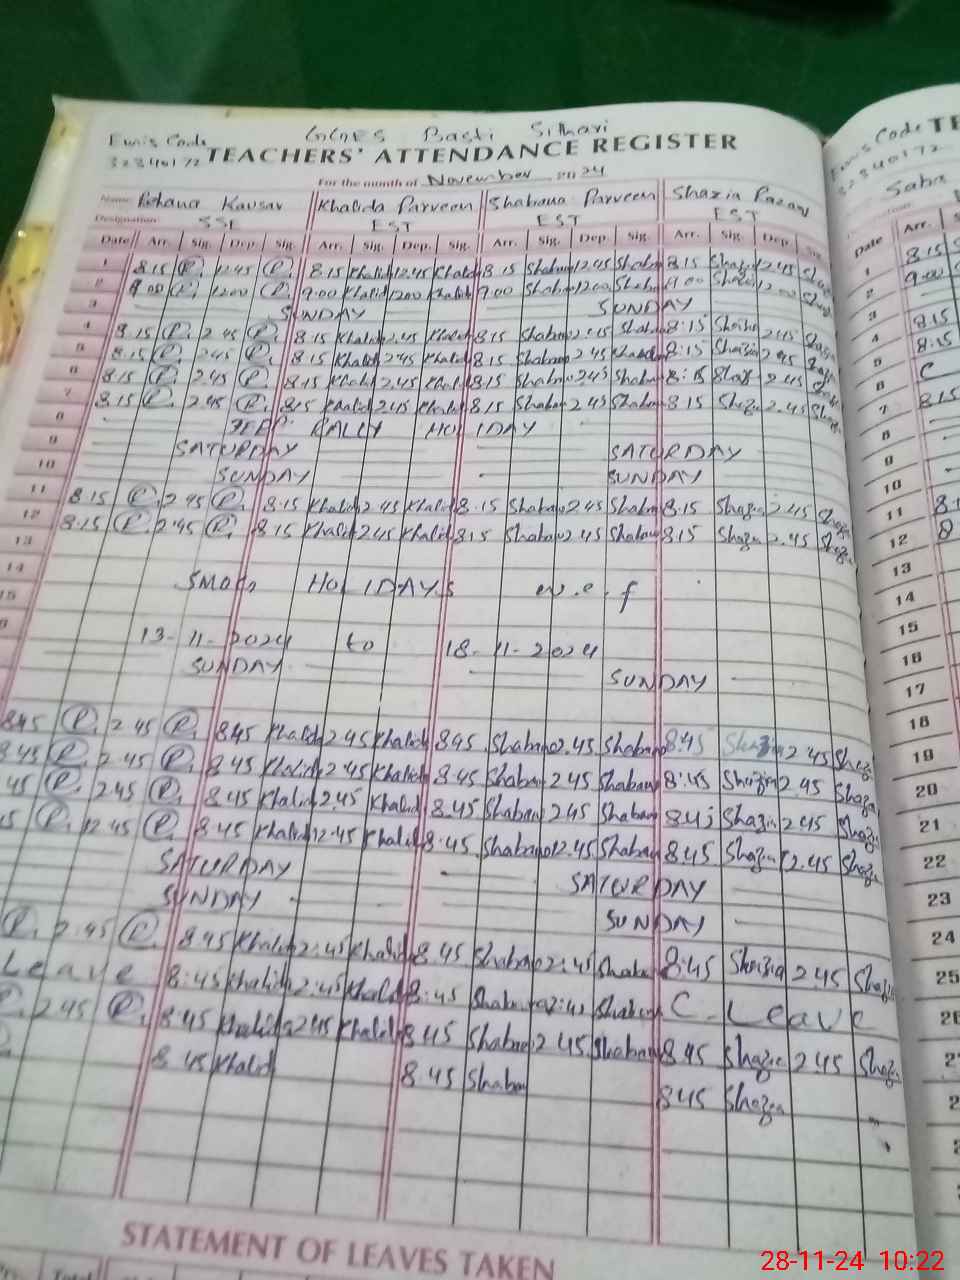 Emis Code GGES Basti Sithari
32340172 TEACHERS' ATTENDANCE REGISTER
For the month of November 2024
Name Kausar Khalida Parveen Shabana Parveen Shazia
Designation SSE EST EST EST
Date Arr. Sig. Dep. Sig. Arr. Sig. Dep. Sig. Arr. Sig. Dep. Sig. Arr. Sig. Dep. Sig.
1 8.15 R. 12.45 R. 8.15 Khalid 12.45 Khalid 8.15 Shaban 12.45 Shaban 8.15 Shazi 12.45 Shazi
2 9.00 R. 12.00 R. 9.00 Khalid 12.00 Khalid 9.00 Shaban 12.00 Shaban 9.00 Shazi 12.00 Shazi
3 SUNDAY SUNDAY
4 8.15 R. 2.45 R. 8.15 Khalid 2.45 Khalid 8.15 Shaban 2.45 Shaban 8:15 Shazia 2.45 Shazia
5 8.15 R. 2.45 R. 8.15 Khalid 2.45 Khalid 8.15 Shaban 2.45 8:15 Shazia 2.45
6 8.15 R. 2.45 R. 8.15 Khalid 2.45 Khalid 8.15 Shaban 2.45 Shaban 8:15 2.45
7 8.15 R. 2.45 R. 8.15 Khalid 2.45 Khalid 8.15 Shaban 2.45 Shaban 8.15 Shazia 2.45 Shazia
8 RALLY HOLIDAY
9 SATURDAY SATURDAY
10 SUNDAY SUNDAY
11 8.15 R. 2.45 R. 8.15 Khalid 2.45 Khalid 8.15 Shaban 2.45 Shaban 8.15 Shazia 2.45 Shazia
12 8.15 R. 2.45 R. 8.15 Khalid 2.45 Khalid 8.15 Shaban 2.45 Shaban 8.15 Shazia 2.45 Shazia
13
14 SMOG HOLIDAYS w.e.f
15
13-11-2024 to 18-11-2024
SUNDAY SUNDAY
8.45 R. 2.45 R. 8.45 Khalid 2.45 Khalid 8.45 Shabana 2.45 Shabana 8.45 Shazia 2.45 Shazia
8.45 R. 2.45 R. 8.45 Khalid 2.45 Khalid 8.45 Shaban 2.45 Shaban 8:45 Shazia 2.45
45 R. 2.45 R. 8.45 Khalid 2.45 Khalid 8.45 Shaban 2.45 Shaban 8.45 Shazia 2.45 Shazia
R. 12.45 R. 8.45 Khalid 12.45 Khalid 8.45 Shaban 12.45 Shaban 8.45 Shazia 12.45 Shazia
SATURDAY SATURDAY
SUNDAY SUNDAY
R. 2.45 R. 8.45 Khalid 2:45 Khalid 8.45 Shaban 2:45 Shaban 8:45 Shazia 2.45 Shazia
Leave 8:45 Khalid 2:45 Khalid 8:45 Shaban 2:45 Shaban C. Leave
2.45 R. 8.45 Khalid 2.45 Khalid 8.45 Shaban 2.45 Shaban 8.45 Shazia 2.45 Shazia
8.45 Khalid 8.45 Shaban 8.45 Shazia
STATEMENT OF LEAVES TAKEN
Total
Emis Code TE
32340172
Saba
Date Arr.
1 8.15
2 9.00
3
4 8.15
5 8.15
6 C
7 8.15
8
9
10
11
12
13
14
15
16
17
18
19
20
21
22
23
24
25
26
28-11-24 10:22